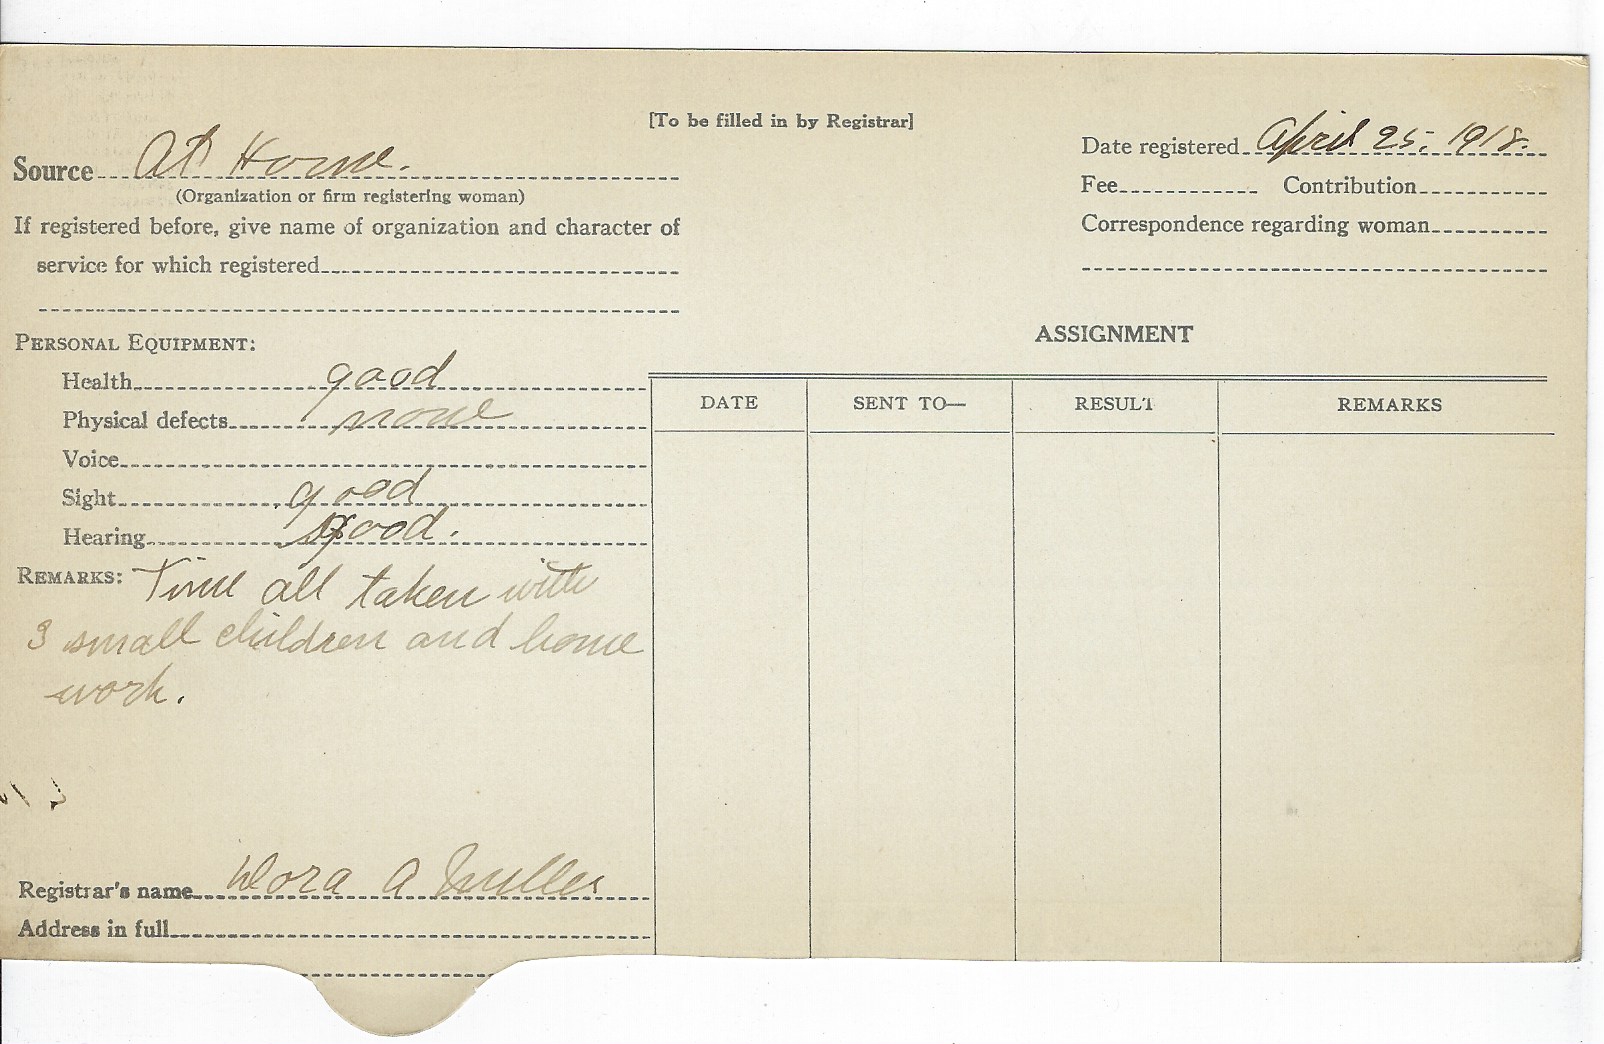 [To be filled in by Registrar]
Source At Home.
(Organization or firm registering woman)
If registered before, give name of organization and character of
service for which registered
Date registered April 25, 1918.
Fee Contribution
Correspondence regarding woman
PERSONAL EQUIPMENT:
Health good
Physical defects none
Voice
Sight good
Hearing good.
REMARKS: Time all taken with
3 small children and home
work.
Registrar's name Dora A Miller
Address in full
ASSIGNMENT
DATE SENT TO— RESULT REMARKS